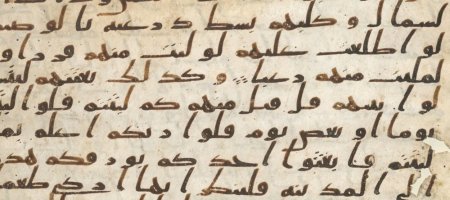 لشمال و كلبهم بسط ذرعيه بالوصيد
لو اطلعت عليهم لوليت منهم فررا و
لملئت منهم رعبا و كذلك بعثنهم ليتسا
لوا بينهم قل قئل منهم كم لبثتم قلوا لبثنا
يوما او بعض يوم قلوا ربكم اعلم بما
لبثتم فابعثوا احدكم بورقكم هذه
الى المدينة فلينظر ايها ازكى طعما